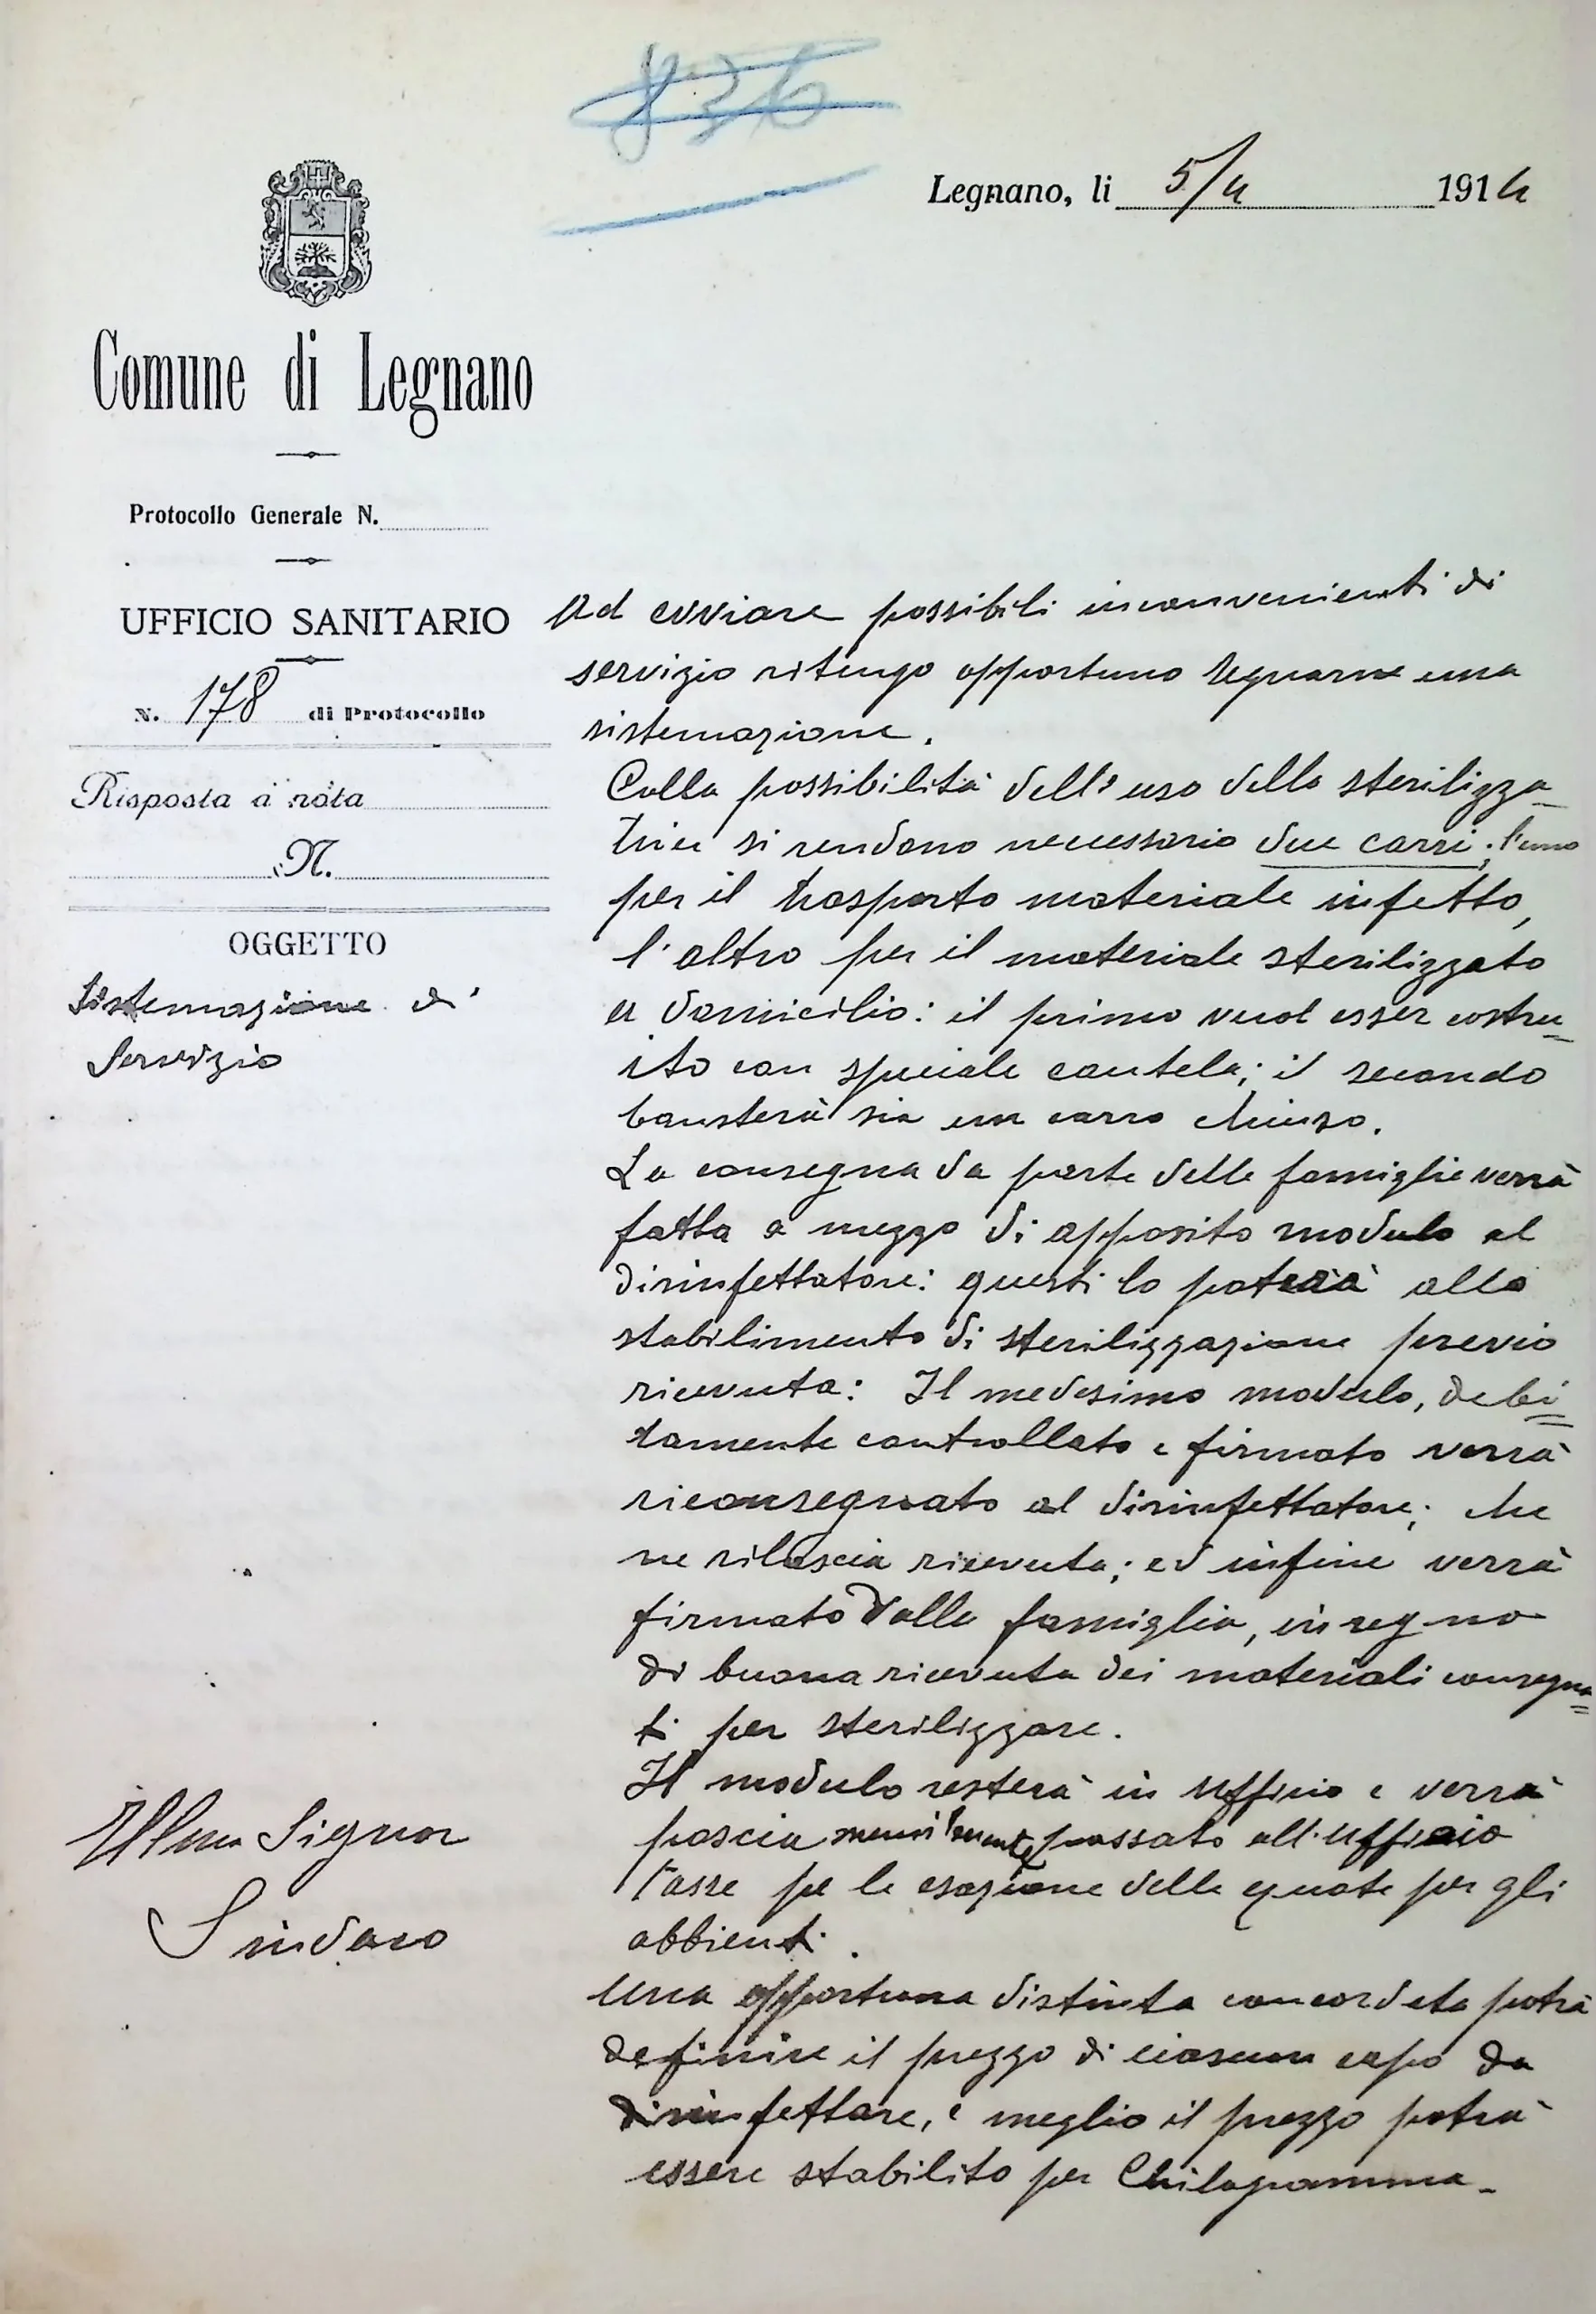 836
Legnano, li 5/4 1914
Comune di Legnano
Protocollo Generale N.
UFFICIO SANITARIO
N. 178 di Protocollo
Risposta a nota
N.
OGGETTO
Sistemazione di
Servizio
Ad ovviare possibili inconvenienti di
servizio ritengo opportuno una
sistemazione.
Colla possibilità dell'uso della sterilizza-
trice si rendono necessario due carri; l'uno
per il trasporto materiale infetto,
l'altro per il materiale sterilizzato
a domicilio: il primo vuol esser costru=
ito con speciale cautela; il secondo
basterà sia un carro chiuso.
La consegna da parte delle famiglie verrà
fatta a mezzo di apposito modulo al
disinfettatore: questi lo porterà allo
stabilimento di sterilizzazione previo
ricevuta: Il medesimo modulo, debi=
tamente controllato e firmato verrà
riconsegnato al disinfettatore; che
ne rilascia ricevuta; ed infine verrà
firmato dalla famiglia, in segno
di buona ricevuta dei materiali consegna=
ti per sterilizzare.
Il modulo resterà in Ufficio e verrà
poscia mensilmente passato all'Ufficio
Tasse per la esazione delle quote per gli
abbienti.
Una opportuna distinta concordata potrà
definire il prezzo di ciascun capo da
disinfettare, e meglio il prezzo potrà
essere stabilito per Chilogramma.
Ill.mo Signor
Sindaco